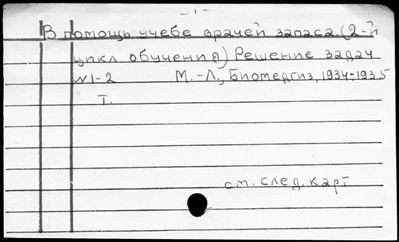 - 1 -
В помощь учебе врачей запаса. (2-й
цикл обучения) Решение задач
№1-2 М.-Л., Биомедгиз, 1934-1935
Т.
см. след. карт.